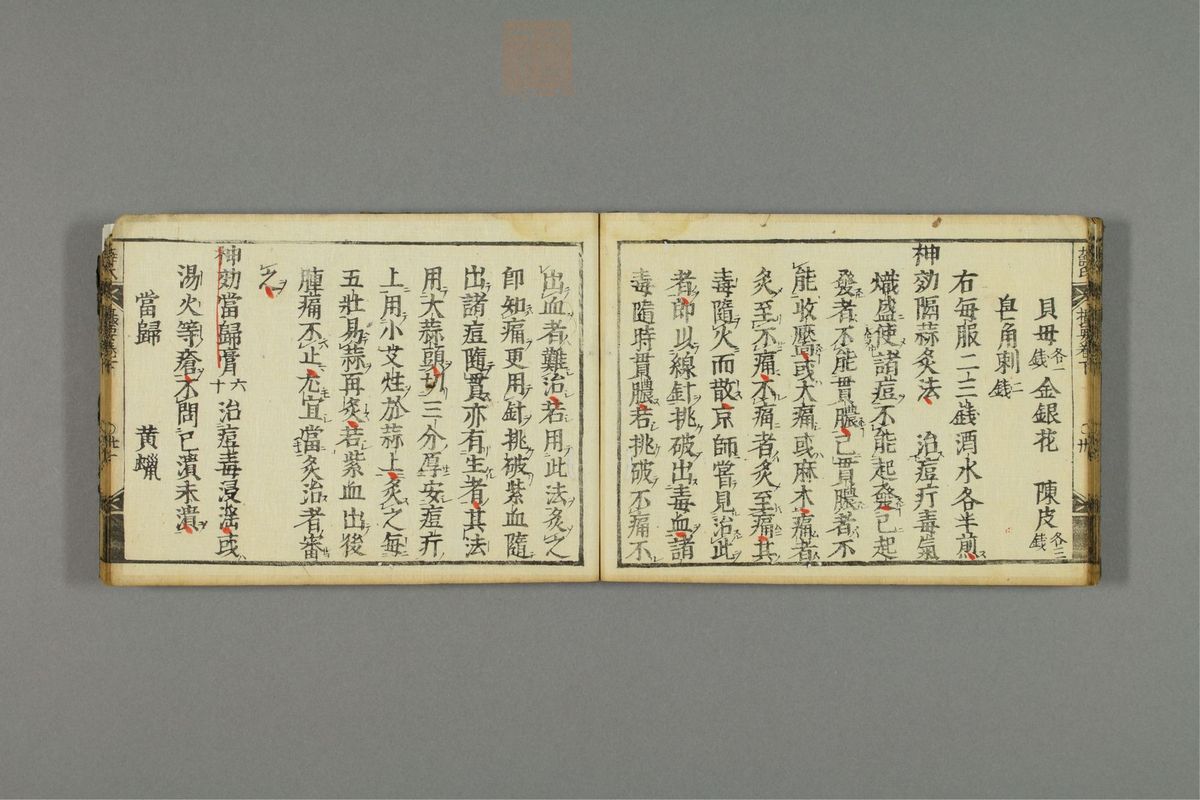 貝母各一錢金銀花　陳皮各三錢
皂角刺二錢
右每服二三錢酒水各半煎
神効隔蒜灸法　治痘疔毒氣
熾盛使諸痘不能起發已起
發者不能貫膿已貫膿者不
能收靨或大痛或麻木痛者
灸至不痛不痛者灸至痛其
毒隨火而散京師嘗見治此
者即以線針挑破出毒血諸
毒隨時貫膿若挑破不痛不
出血者難治若用此法灸之
即知痛更用針挑破紫血隨
出諸痘隨貫亦有生者其法
用大蒜頭切三分厚安痘疔
上用小艾炷於蒜上灸之每
五壯易蒜再灸若紫血出後
腫痛不止尤宜當灸治者審
之
神効當歸膏六十　治痘毒浸淫或
湯火等瘡不問已潰未潰
當歸　黄蠟